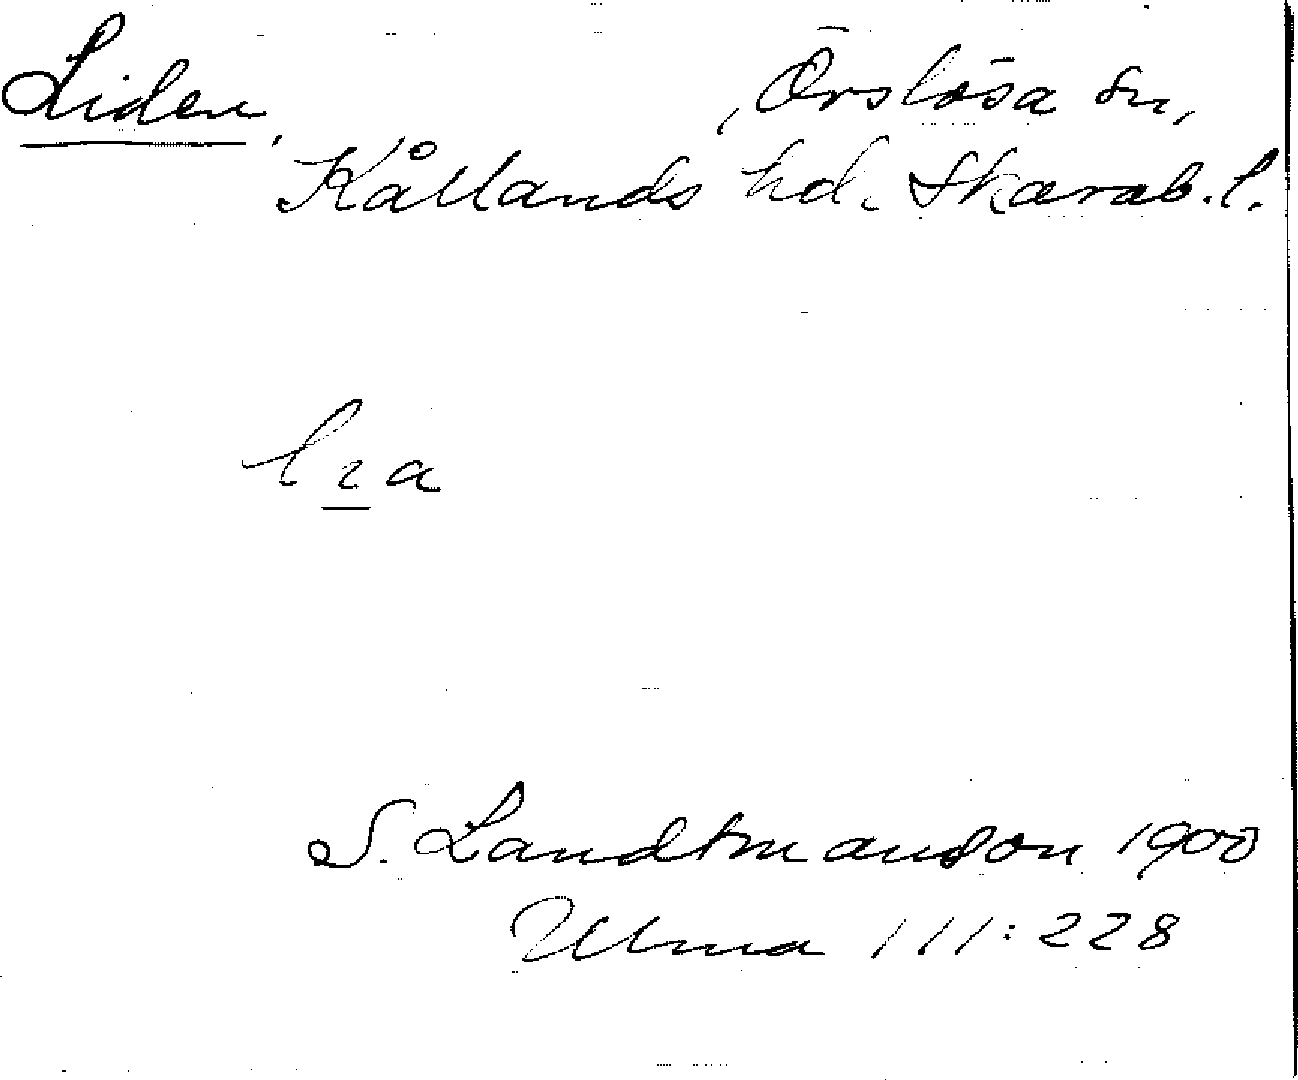 Liden, , Örslösa sn,
Kållands hd. Skarab. l.
S. Landtmanson 1900
Ulma 111:228